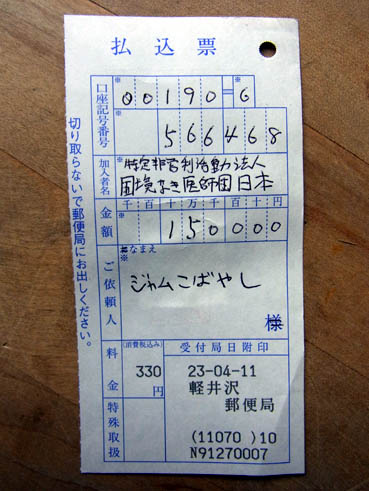 払込票
口座記号番号
※
00190=※6
※
566468
加入者名
※特定非営利活動法人
国境なき医師団日本
金額
千百十万千百十円
※
150000
ご依頼人
※おなまえ
※
ジャムこばやし
様
料金
(消費税込み)
330
円
特殊取扱
受付局日附印
23-04-11
軽井沢
郵便局
(11070 )10
N91270007
切り取らないで郵便局にお出しください。